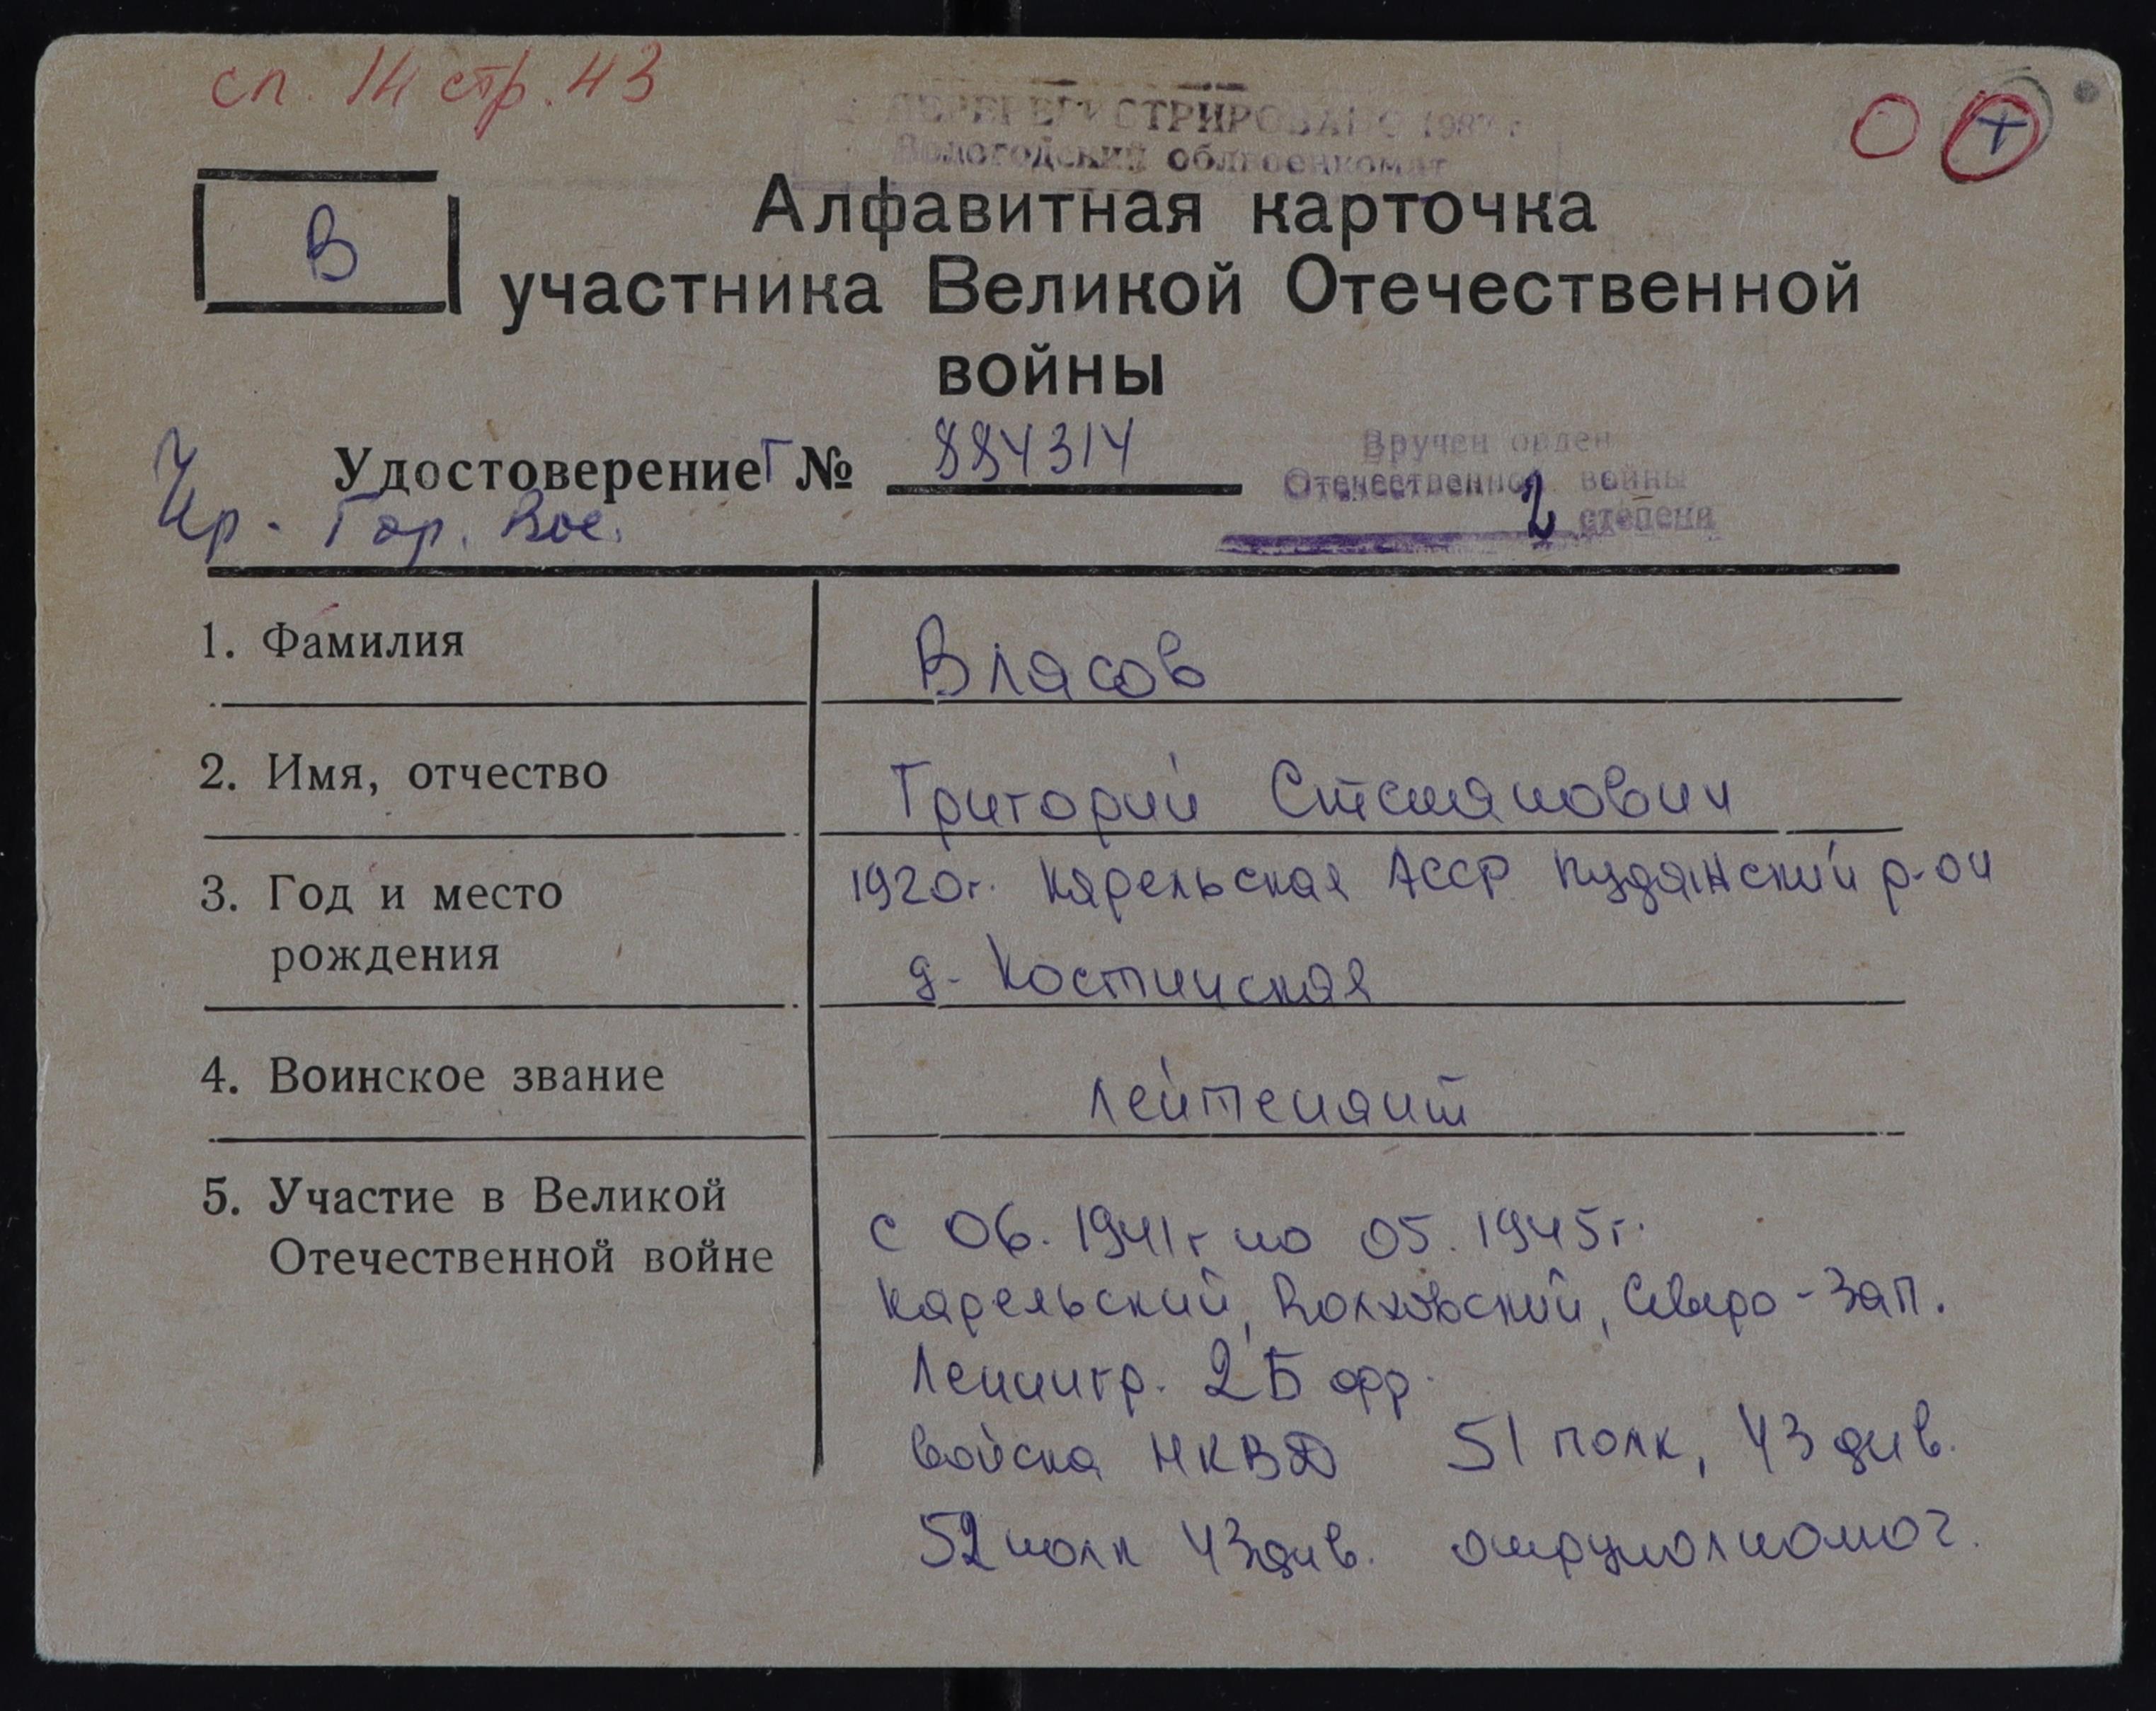 сп. 14 стр. 43
ПЕРЕРЕГИСТРИРОВАНО 1987 г.
Вологодский облвоенкомат
О +
В
Алфавитная карточка
участника Великой Отечественной
войны
Удостоверение Г № 884314
Вручен орден
Отечественной войны
2 степени
Чр. Гор. Вое.
1. Фамилия Власов
2. Имя, отчество Григорий Степанович
3. Год и место 1920г. Карельская АССР Пудажский р-он
рождения д. Костинская
4. Воинское звание лейтенант
5. Участие в Великой
Отечественной войне с 06. 1941г по 05. 1945г.
Карельский, Волховский, Северо-Зап.
Ленингр. 2Б фр.
войска НКВД 51 полк, 43 див.
52 полк 43 див.